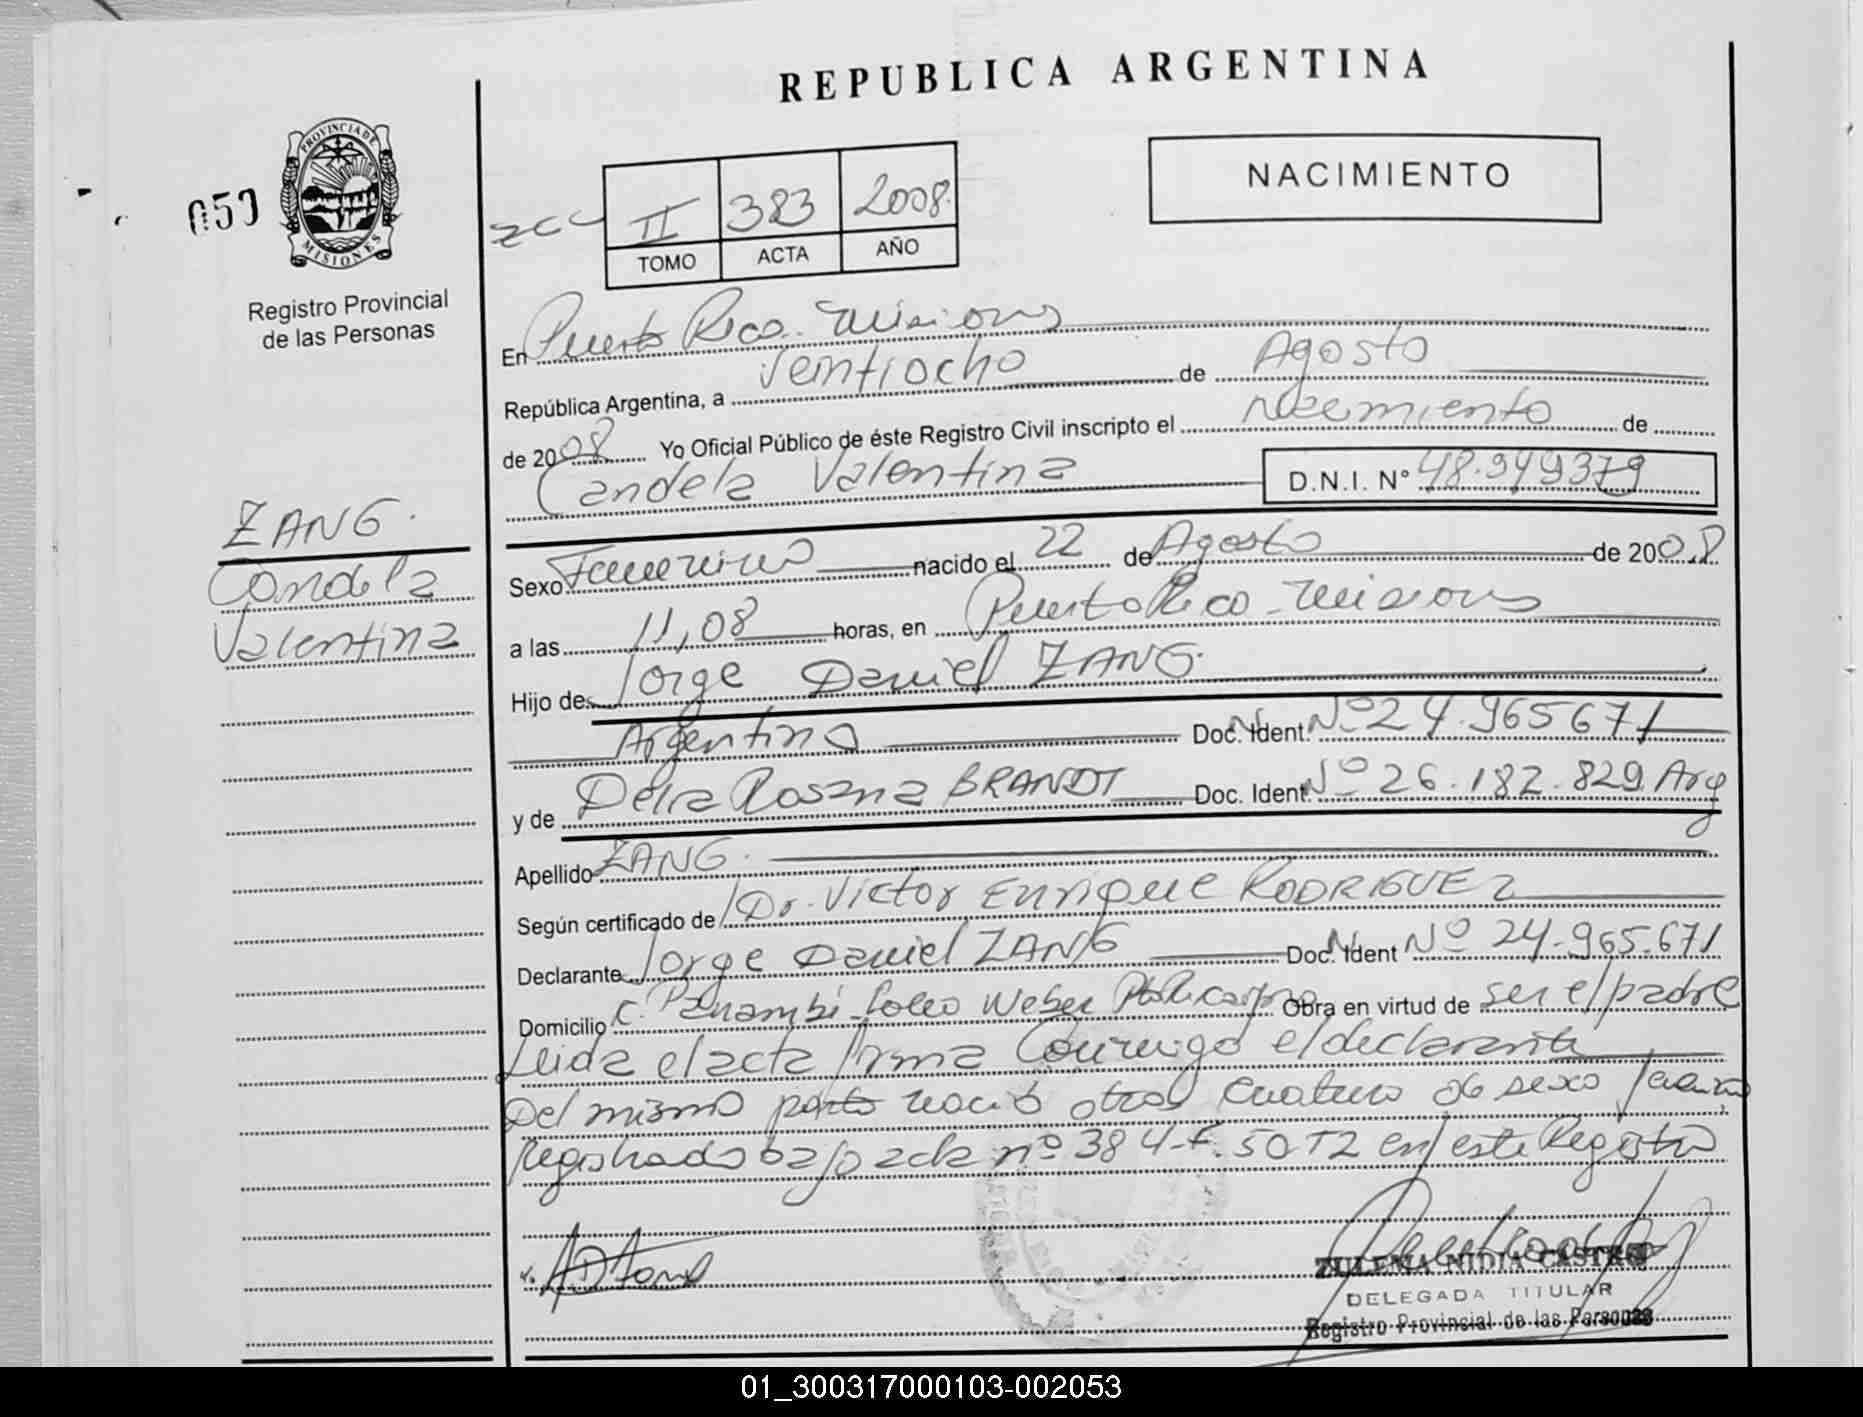 REPUBLICA ARGENTINA
PROVINCIA DE
MISIONES
050
Registro Provincial
de las Personas
NACIMIENTO
II 383 2008
TOMO ACTA AÑO
En Puerto Rico. Misiones
República Argentina, a Veintiocho de Agosto
de 2008 Yo Oficial Público de éste Registro Civil inscripto el Nacimiento de
Candela Valentina D.N.I. Nº 48.949379
ZANG.
Candela
Valentina
Sexo Femenino nacido el 22 de Agosto de 2008
a las 11,08 horas, en Puerto Rico - Misiones
Hijo de Jorge Daniel ZANG.
Argentino Doc. Ident. Nº 24.965671
y de Delia Rosana BRANDT Doc. Ident. Nº 26.182.829 Arg
Apellido ZANG.
Según certificado de Dr. Victor Enrique RODRIGUEZ
Declarante Jorge Daniel ZANG Doc. Ident Nº 24.965.671
Domicilio C. Panambí Weber Obra en virtud de ser el padre
Leida el acta firma Conmigo el declarante
Del mismo parto nació otra de sexo
Registrado bajo acta nº 384 - f. 50 T2 en este Registro
ZULEMA NIDIA CASTRO
DELEGADA TITULAR
Registro Provincial de las Personas
01_300317000103-002053